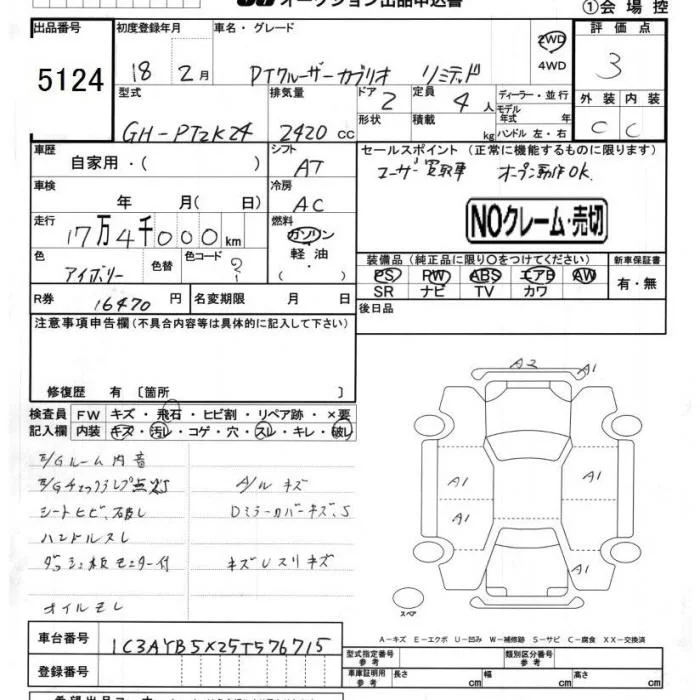 オークション出品申込書
①会場控
出品番号 初度登録年月 車名・グレード 評価点
5124 18 2月 PTクルーザーカブリオ リミテッド 2WD 4WD 3
型式 排気量 ドア 2 定員 4人 ディーラー・並行 外装 内装
GH-PT2K24 2420cc 形状 積載 kg モデル年式 年 ハンドル 左・右 C C
車歴 自家用・( ) シフト AT セールスポイント (正常に機能するものに限ります)
ユーザー買取車 オープン動作OK.
車検 年 月( 日) 冷房 AC
NOクレーム・売切
走行 17万4千000km 燃料 ガソリン 軽油 ・( )
色 アイボリー 色替 色コード ? 装備品 (純正品に限り○をつけてください) 新車保証書
PS PW ABS エアB AW 有・無
SR ナビ TV カワ
R券 16470円 名変期限 月 日 後日品
注意事項申告欄 (不具合内容等は具体的に記入して下さい)
修復歴 有 〔箇所 〕
検査員 FW キズ・飛石・ヒビ割・リペア跡・×要
記入欄 内装 キズ・汚レ・コゲ・穴・スレ・キレ・破レ
E/Gルーム内音
E/Gチェックランプ A/ルキズ
シートヒビ、破レ DミラーカバーキズS
ハンドルスレ
ダッシュ板モニター付 キズUスリキズ
オイルモレ
A2 A1
A1 A1
A1
A1
スペア
A-キズ E-エクボ U-凹み W-補修跡 S-サビ C-腐食 XX-交換済
車台番号 1C3AYB5X25T576715
型式指定番号 参考 類別区分番号 参考
登録番号 車庫証明用 参考 長さ cm 幅 cm 高さ cm